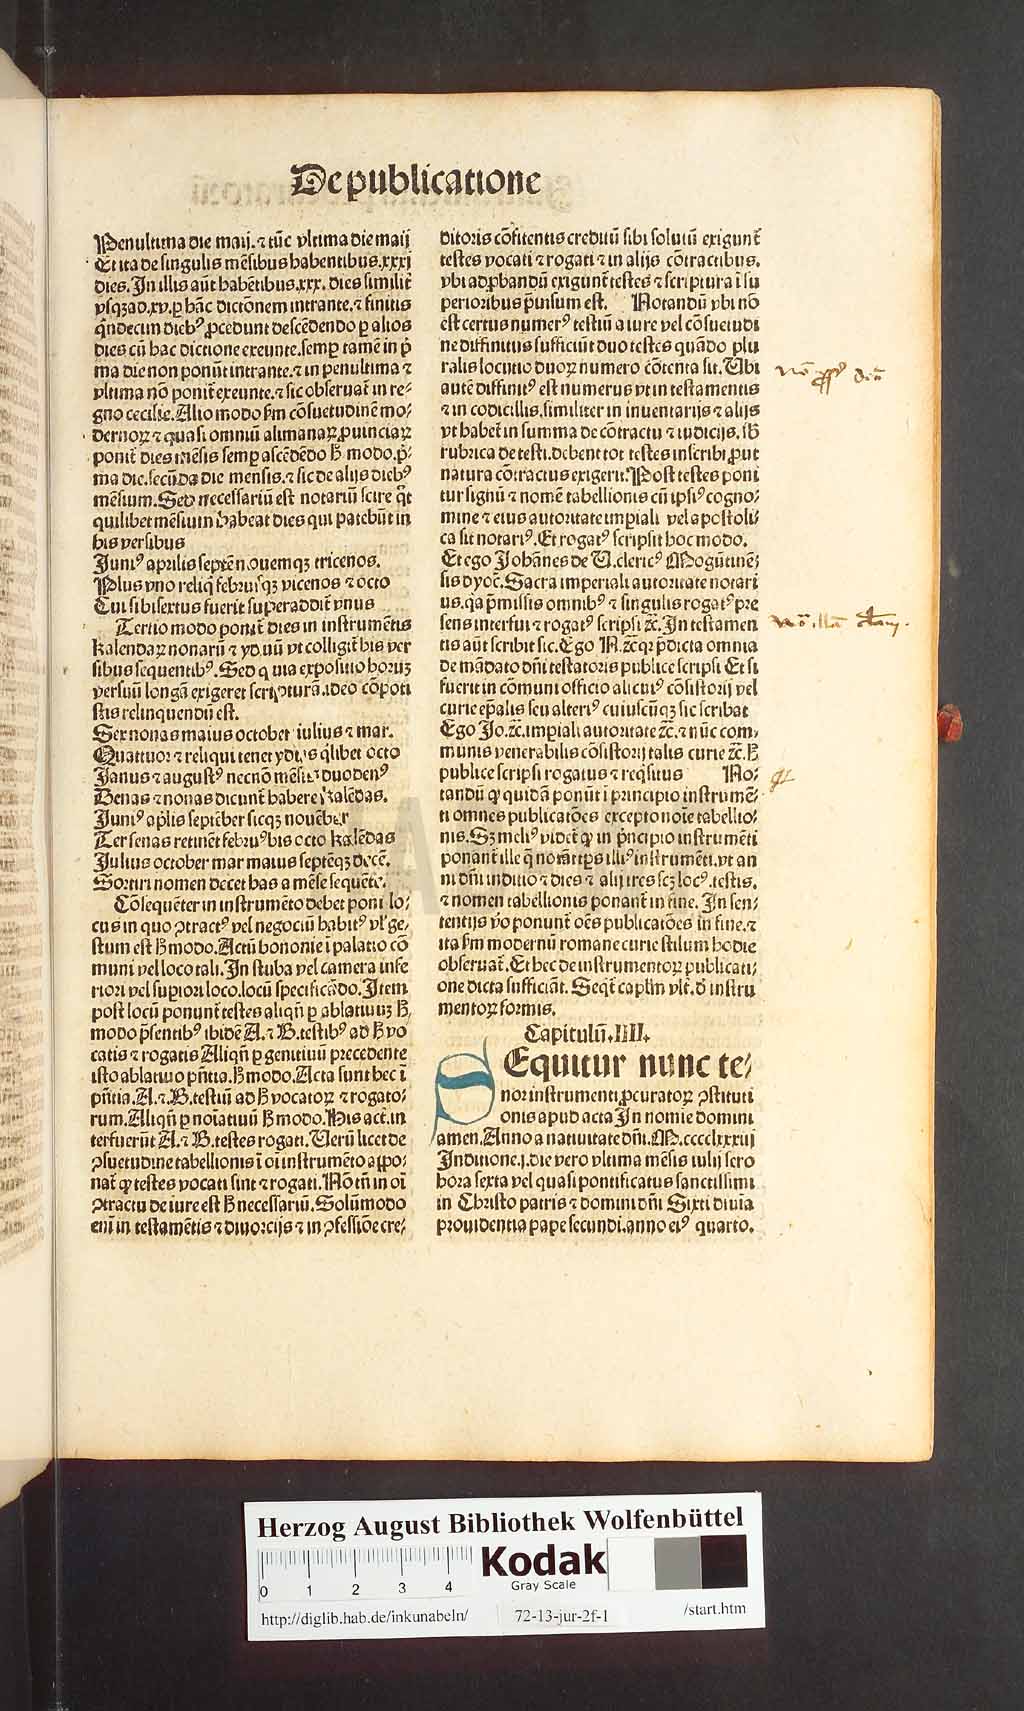 De publicatione
Penultima die maij. ⁊ tūc vltima die maij
Et ita de singulis mēsibus habentibus.xxxj
dies. In illis aūt habētibus.xxx. dies similit̄
vsqꝫ ad.xv. ꝑ hāc dictōnem intrante.⁊ finitis
q̄ndecim diebꝰ ꝓcedunt descēdendo ꝑ alios
dies cū hac dictione exeunte.semꝑ tamē in p̄
ma die non ponūt intrante.⁊ in penultima ⁊
vltima nō ponit̄ exeunte.⁊ sic obseruat̄ in re⸗
gno cecilie. Alio modo ẜm cōsuetudinē mo⸗
dernoꝝ ⁊ quasi omniū alimanaꝝ ꝓuinciaꝝ
ponit̄ dies mēsis semꝑ ascēdēdo ħ modo.p̄⸗
ma die.secūda die mensis.⁊ sic de alijs diebꝰ
mēsium. Sed necessariū est notariū scire q̄t
quilibet mēsium habeat dies qui patebūt in
his versibus
Juniꝰ aprilis septēn ouemqꝫ tricenos.
Plus vno reliq̄ februꝰqꝫ vicenos ⁊ octo
Cui si bisextus fuerit superaddit̄ vnus
Tertio modo ponit̄ dies in instrumētis
kalendaꝝ nonarū ⁊ yduū vt colligit̄ his ver
sibus sequentibꝰ. Sed q uia expositio horuꝫ
versuū longā exigeret scripturā.ideo cōpoti
stis relinquendū est.
Sex nonas maius october iulius ⁊ mar.
Quattuor ⁊ reliqui tenet ydus q̄libet octo
Janus ⁊ augustꝰ necnō mēsis duodenꝰ
Denas ⁊ nonas dicunt̄ habere kalēdas.
Juniꝰ ap̄lis septēber sicqꝫ nouēber
Ter senas retinēt februꝰ bis octo kalēdas
Julius october mar maius septēqꝫ decē.
Sortiri nomen decet has a mēse sequēte.
Cōsequēter in instrumēto debet poni lo⸗
cus in quo ꝯtractꝰ vel negociū habitꝰ vl̓ ge⸗
stum est ħ modo. Actū bononie ī palatio cō
muni vel loco tali. In stuba vel camera infe
riori vel suꝑiori loco.locū specificādo. Item
post locū ponunt̄ testes aliqn̄ ꝑ ablatiuuꝫ ħ
modo p̄sentibꝰ ibidē A. ⁊ B. testibꝰ ad ħ vo
catis ⁊ rogatis Aliqn̄ ꝑ genitiuū precedente
isto ablatiuo p̄ntia. ħ modo. Acta sunt hec ī
p̄ntia. A. ⁊. B. testiū ad ħ vocatoꝝ ⁊ rogato⸗
rum. Aliqn̄ ꝑ noīatiuū ħ modo. His act̄. in
terfuerūt A. ⁊ B. testes rogati. Verū licet de
ꝯsuetudine tabellionis ī oī instrumēto appo⸗
nat̄ ꝙ testes vocati sint ⁊ rogati. Nō tn̄ in oī
ꝯtractu de iure est ħ necessariū. Solūmodo
eni in testamētis ⁊ diuorcijs ⁊ in ꝯfessiōe cre⸗
ditoris cōfitentis creditū sibi solutū exigunt̄
testes vocati ⁊ rogati ⁊ in alijs cōtractibus.
vbi ad ꝓbandū exigunt̄ testes ⁊ scriptura ī su
perioribus p̄uisum est. Notandū vbi nō
est certus numerꝰ testiū a iure vel cōsuetudi
ne diffinitus sufficiūt duo testes quādo plu
ralis locutio duoꝝ numero cōtenta sit. Ubi
autē diffinitꝰ est numerus vt in testamentis
⁊ in codicillis.similiter in inuentarijs ⁊ alijs
vt habet̄ in summa de cōtractu ⁊ iudicijs. sb̄
rubrica de testi. debent tot testes inscribi ꝓut
natura cōtractus exigerit. Post testes poni
tur signū ⁊ nomē tabellionis cū ipsiꝰ cogno⸗
mine ⁊ eius autoritate imꝑiali vel apostoli⸗
ca sit notariꝰ. Et rogatꝰ scripsit hoc modo.
Et ego Johānes de U. clericꝰ Mogūtinē⸗
sis dyoc̄. Sacra imperiali autoritate notari
us. q̇a p̄missis omnibꝰ ⁊ singulis rogatꝰ pre
sens interfui ⁊ rogatꝰ scripsi ⁊c̄. In testamen
tis aūt scribit sic. Ego N. ⁊c̄ qr p̄dicta omnia
de mādato dn̄i testatoris publice scripsi Et si
fuerit in cōmuni officio alicuiꝰ cōsistorij vel
curie ep̄alis seu alteriꝰ cuiuscūqꝫ sic scribat
Ego Jo. ⁊c̄. imꝑiali autoritate ⁊c̄. ⁊ nūc com⸗
munis venerabilis cōsistorij talis curie ⁊c̄. ħ
publice scripsi rogatus ⁊ reqsitus No⸗
tandū ꝙ quidā ponūt ī principio instrumē⸗
ti omnes publicatōes excepto noīe tabellio⸗
nis. Sꝫ meliꝰ videt̄ ꝙ in p̄ncipio instrumēti
ponant̄ ille q̄ norāt tp̄s illiꝰ instrumēti. vt an
ni dn̄i inditio ⁊ dies ⁊ alij tres scꝫ locꝰ. testis.
⁊ nomen tabellionis ponant̄ in fine. In sen⸗
tentijs v̓o ponunt̄ oēs publicatōes in fine. ⁊
ita ẜm modernū romane curie stilum hodie
obseruat̄. Et hec de instrumentoꝝ publicati⸗
one dicta sufficiāt. Seqt̄ caplm vlt̄. d̓ instru
mentoꝝ formis.
Capitulū. IIII.
SEquitur nunc te⸗
nor instrumenti ꝓcuratoꝝ ꝯstituti
onis apud acta In nomie domini
amen. Anno a natiuitate dn̄i. M. cccclxxxij
Inditione. j. die vero vltima mēsis iulij sero
hora sexta vel quasi pontificatus sanctissimi
in Christo patris ⁊ domini dn̄i Sixti diuīa
prouidentia pape secundi. anno eiꝰ quarto.
Herzog August Bibliothek Wolfenbüttel
0 1 2 3 4
Kodak
Gray Scale
http://diglib.hab.de/inkunabeln/ 72-13-jur-2f-1 /start.htm